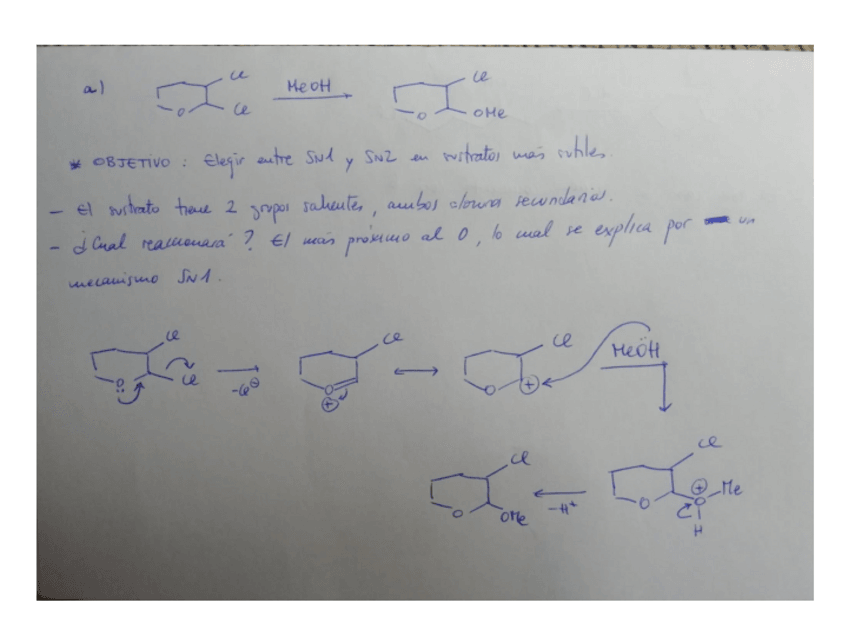 a)
Cl
MeOH
Cl
O
Cl
O
OMe
* OBJETIVO : Elegir entre SN1 y SN2 en sustratos más sutiles.
- El sustrato tiene 2 grupos salientes, ambos cloruros secundarios.
- ¿Cual reaccionará? El más próximo al O, lo cual se explica por un
mecanismo SN1.
Cl
Cl
Cl
MeÖH
O
Cl
-Cl⊖
O
⊕
O
⊕
Cl
Cl
O
OMe
-H+
O
⊕
O
Me
H